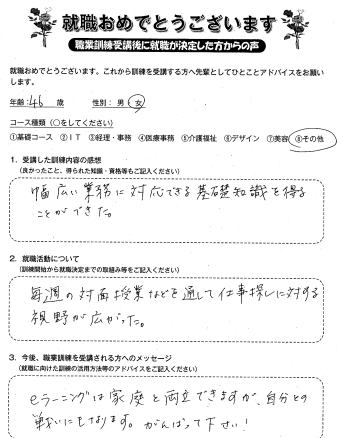 就職おめでとうございます
職業訓練受講後に就職が決定した方からの声
就職おめでとうございます。これから訓練を受講する方へ先輩としてひとことアドバイスをお願い
します。
年齢：46 歳 性別：男 女
コース種類（○をしてください）
①基礎コース ②IT ③経理・事務 ④医療事務 ⑤介護福祉 ⑥デザイン ⑦美容 ⑧その他
1．受講した訓練内容の感想
（良かったこと、得られた知識・資格等もご記入ください）
幅広い業務に対応できる基礎知識を得る
ことができた。
2．就職活動について
（訓練開始から就職決定までの取組み等をご記入ください）
毎週の対面授業などを通して仕事探しに対する
視野が広がった。
3．今後、職業訓練を受講される方へのメッセージ
（就職に向けた訓練の活用方法等のアドバイスをご記入ください）
eラーニングは家庭と両立できますが、自分との
戦いにもなります。がんばって下さい！